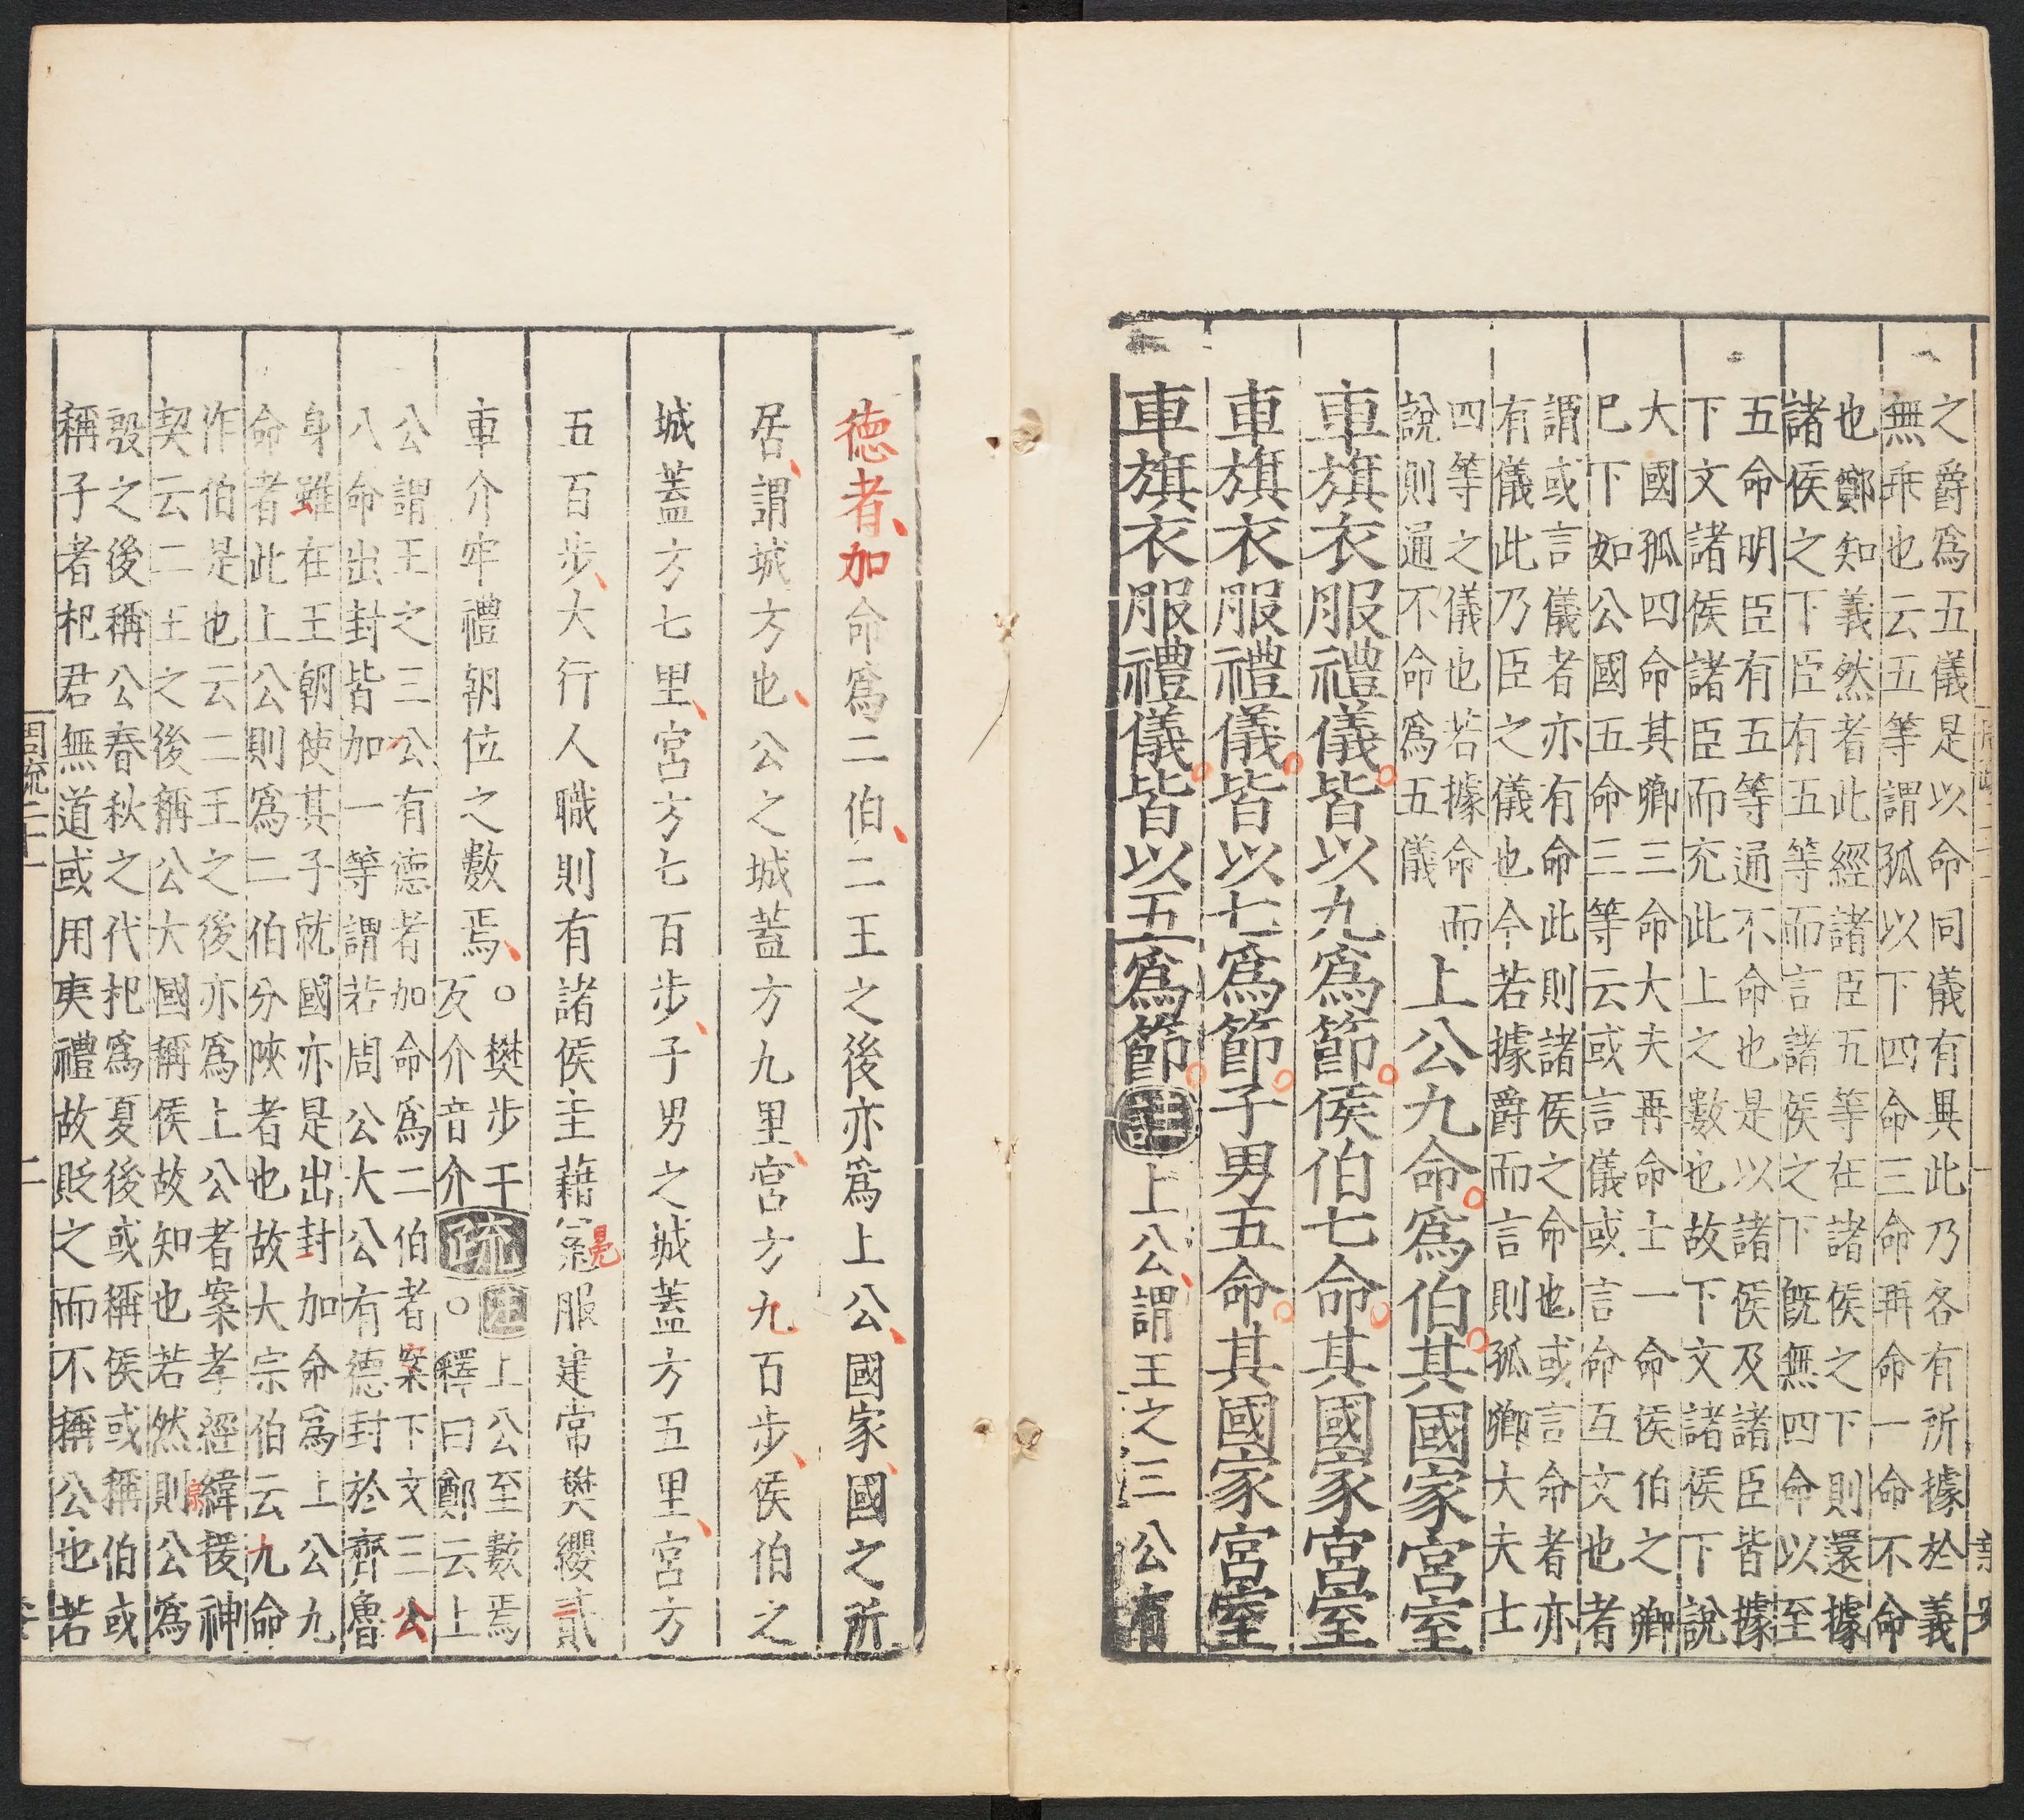 之爵爲五儀是以命同儀有異此乃各有所據於義
無乖也云五等謂孤以下四命三命再命一命不命
也鄭知義然者此經諸臣五等在諸侯之下則還據
諸侯之下臣有五等而言諸侯之下旣無四命以至
五命明臣有五等通不命也是以諸侯及諸臣皆據
下文諸侯諸臣而充此上之數也故下文諸侯下說
大國孤四命其卿三命大夫再命士一命侯伯之卿
巳下如公國五命三等云或言儀或言命互文也者
謂或言儀者亦有命此則諸侯之命也或言命者亦
有儀此乃臣之儀也今若據爵而言則孤卿大夫士
四等之儀也若據命而
說則通不命爲五儀
上公九命爲伯其國家宮室
車旗衣服禮儀皆以九爲節侯伯七命其國家宮室
車旗衣服禮儀皆以七爲節子男五命其國家宮室
車旗衣服禮儀皆以五爲節註上公謂王之三公有
德者加命爲二伯二王之後亦爲上公國家國之所
居謂城方也公之城蓋方九里宮方九百步侯伯之
城蓋方七里宮方七百步子男之城蓋方五里宮方
五百步大行人職則有諸侯圭藉冕服建常樊纓貳
車介牢禮朝位之數焉
○樊步干
反介音介
疏
註上公至數焉
○釋曰鄭云上
公謂王之三公有德者加命爲二伯者案下文三公
八命出封皆加一等謂若周公大公有德封於齊魯
身雖在王朝使其子就國亦是出封加命爲上公九
命者此上公則爲二伯分陝者也故大宗伯云九命
作伯是也云二王之後亦爲上公者案孝經緯援神
契云二王之後稱公大國稱侯故知也若然則公爲
殷之後稱公春秋之代杞爲夏後或稱侯或稱伯或
稱子者杞君無道或用夷禮故貶之而不稱公也若
周疏二十一
二